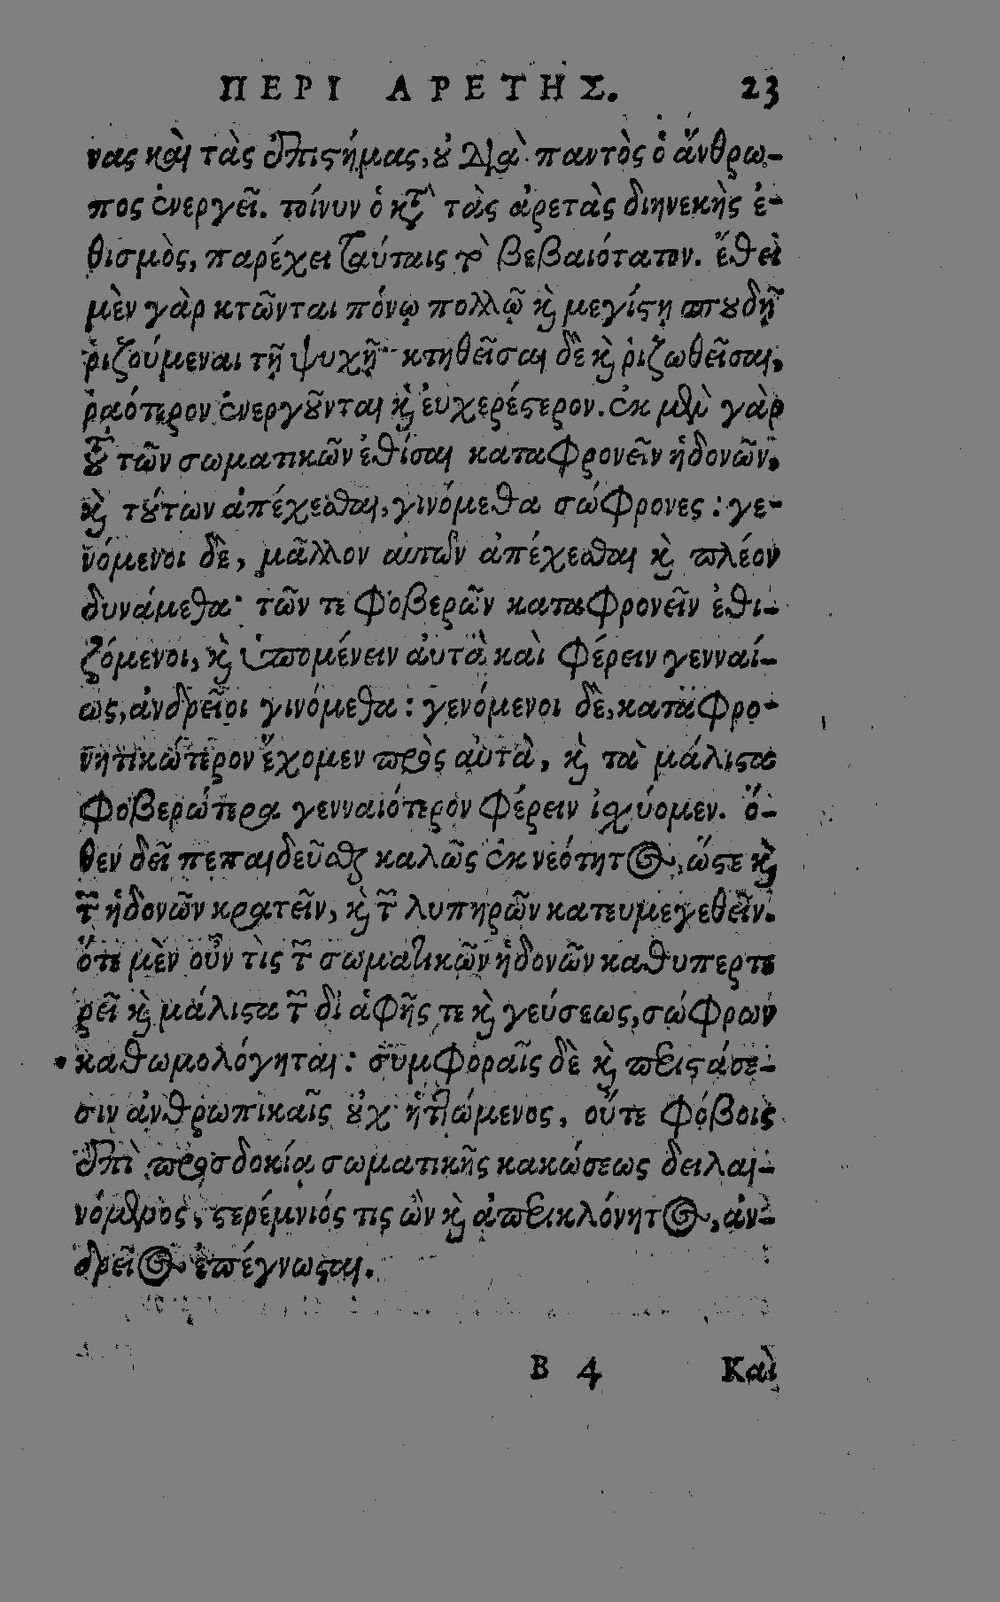 ΠΕΡΙ ΑΡΕΤΗΣ. 23
νας καὶ τὰς ἐπιστήμας, οὐ διὰ παντὸς ὁ ἄνθρω-
πος ἐνεργεῖ. τοίνυν ὁ κατὰ τὰς ἀρετὰς διηνεκὴς ἐ-
θισμὸς, παρέχει ταύταις τὸ βεβαιότατον. ἔθει
μὲν γὰρ κτῶνται πόνῳ πολλῷ καὶ μεγίστῃ σπουδῇ
ῥιζούμεναι τῇ ψυχῇ· κτηθεῖσαι δὲ καὶ ῥιζωθεῖσαι,
ῥαότερον ἐνεργοῦνται καὶ ἐυχερέστερον. ἐκ μὲν γὰρ
τοῦ τῶν σωματικῶν ἐθίσαι καταφρονεῖν ἡδονῶν,
καὶ τούτων ἀπέχεσθαι, γινόμεθα σώφρονες : γε-
νόμενοι δὲ, μᾶλλον αὐτῶν ἀπέχεσθαι καὶ πλέον
δυνάμεθα· τῶν τε φοβερῶν καταφρονεῖν ἐθι-
ζόμενοι, καὶ ὑπομένειν ἀυτὰ καὶ φέρειν γενναί-
ως, ἀνδρεῖοι γινόμεθα : γενόμενοι δὲ, καταφρο-
νητικώτερον ἔχομεν πρὸς αὐτὰ, καὶ τὰ μάλιστα
φοβερώτερα γενναιότερον φέρειν ἰσχύομεν. ὅ-
θεν δεῖ πεπαιδεῦσθαι καλῶς ἐκ νεότητος, ὥστε καὶ
τῶν ἡδονῶν κρατεῖν, καὶ τῶν λυπηρῶν κατευμεγεθεῖν.
ὅτε μὲν οὖν τὶς τῶν σωματικῶν ἡδονῶν καθυπερτε
ρεῖ καὶ μάλιστα τῶν δἰ ἁφῆς τε καὶ γεύσεως, σώφρων
καθωμολόγηται : συμφοραῖς δὲ καὶ περιστάσε-
σιν ἀνθρωπικαῖς οὐχ ἡττώμενος, οὔτε φόβοις
ἐπὶ προσδοκίᾳ σωματικῆς κακώσεως δειλαι-
νόμενος, στερέμνιός τις ὢν καὶ ἀπερικλόνητος, ἀν-
δρεῖος ἐπέγνωσται.
B 4 Καὶ